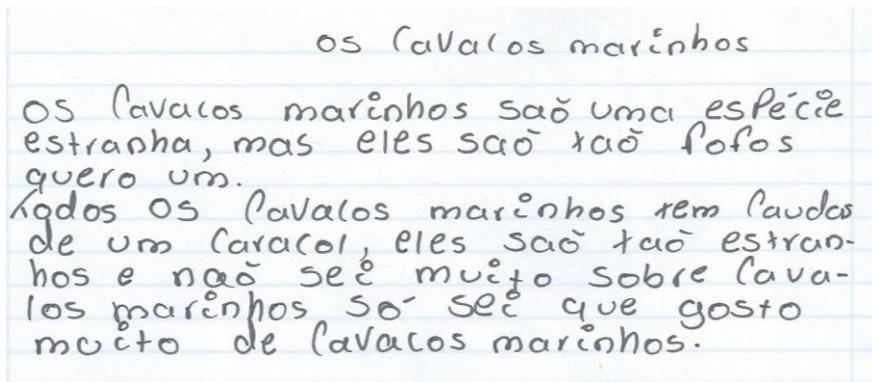 os Cavalos marinhos
Os Cavalos marinhos saõ uma espécie
estranha, mas eles saõ taõ fofos
quero um.
Todos os Cavalos marinhos tem Caudas
de um Caracol, eles saõ taõ estran-
hos e naõ sei muito sobre Cava-
los marinhos só sei que gosto
muito de Cavalos marinhos.